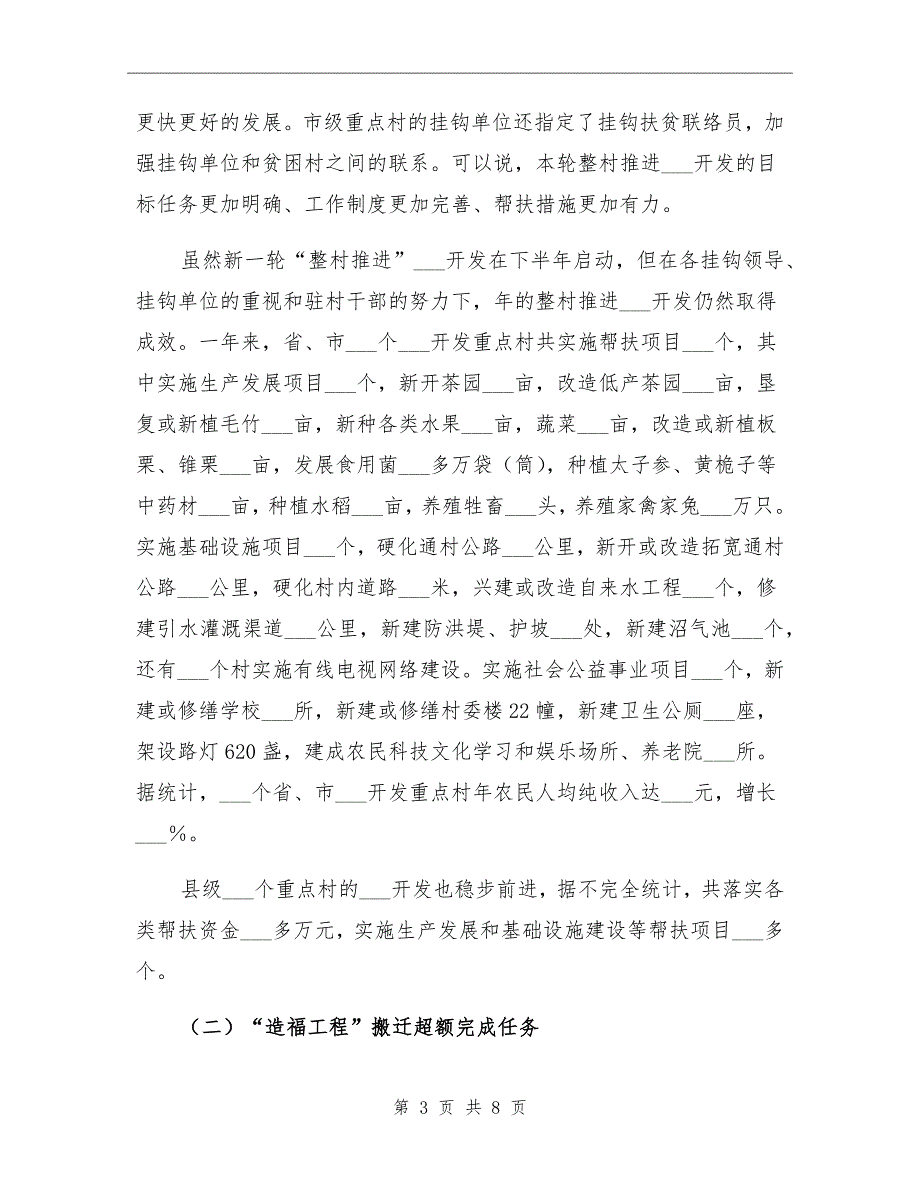 更快更好的发展。市级重点村的挂钩单位还指定了挂钩扶贫联络员，加
强挂钩单位和贫困村之间的联系。可以说，本轮整村推进___开发的目
标任务更加明确、工作制度更加完善、帮扶措施更加有力。
虽然新一轮“整村推进”___开发在下半年启动，但在各挂钩领导、
挂钩单位的重视和驻村干部的努力下，年的整村推进___开发仍然取得
成效。一年来，省、市___个___开发重点村共实施帮扶项目___个，其
中实施生产发展项目___个，新开茶园___亩，改造低产茶园___亩，垦
复或新植毛竹___亩，新种各类水果___亩，蔬菜___亩，改造或新植板
栗、锥栗___亩，发展食用菌___多万袋（筒），种植太子参、黄桅子等
中药材___亩，种植水稻___亩，养殖牲畜___头，养殖家禽家兔___万只。
实施基础设施项目___个，硬化通村公路___公里，新开或改造拓宽通村
公路___公里，硬化村内道路___米，兴建或改造自来水工程___个，修
建引水灌溉渠道___公里，新建防洪堤、护坡___处，新建沼气池___个，
还有___个村实施有线电视网络建设。实施社会公益事业项目___个，新
建或修缮学校___所，新建或修缮村委楼 22 幢，新建卫生公厕___座，
架设路灯 620 盏，建成农民科技文化学习和娱乐场所、养老院___所。
据统计，___个省、市___开发重点村年农民人均纯收入达___元，增长
___％。
县级___个重点村的___开发也稳步前进，据不完全统计，共落实各
类帮扶资金___多万元，实施生产发展和基础设施建设等帮扶项目___多
个。
（二）“造福工程”搬迁超额完成任务
第 3 页 共 8 页